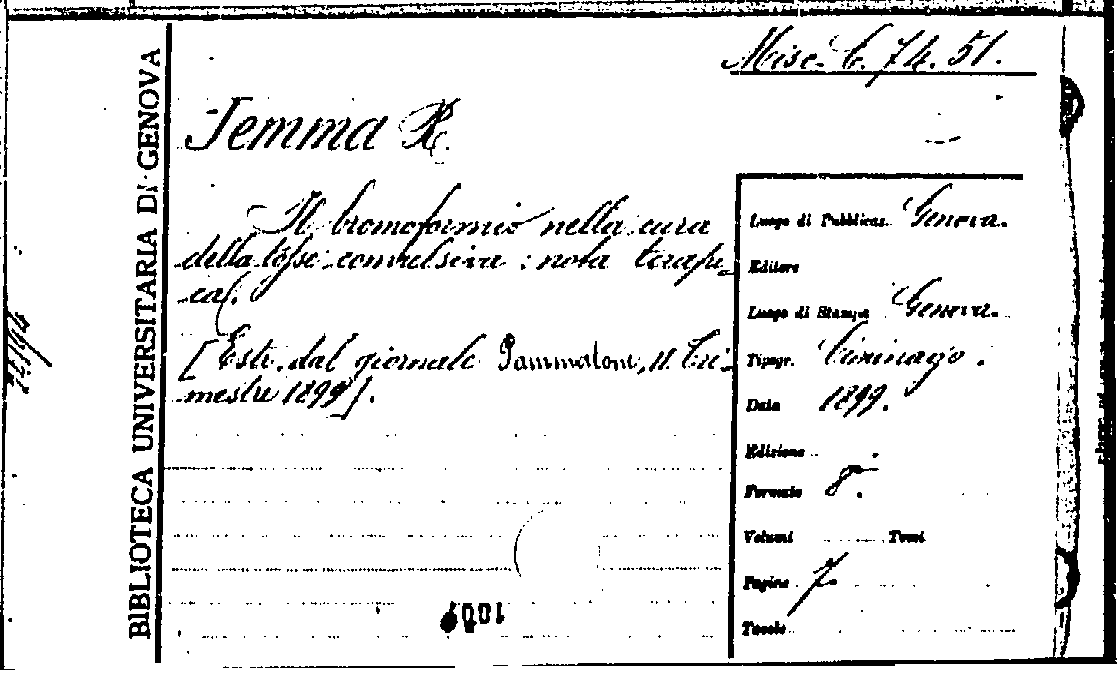 Misc. C. 74. 51.
BIBLIOTECA UNIVERSITARIA DI GENOVA
Jemma R.
Il bromoformio nella cura
della tosse convulsiva: nota terape-
ca).
[Estr. dal giornale Pammatone, II. Tri-
mestre 1899].
Luogo di Pubblicaz. Genova.
Editore
Luogo di Stampa Genova.
Tipogr. Ciminago.
Data 1899.
Edizione
Formato 8°.
Volumi Tomi
Pagine 7
Tavole